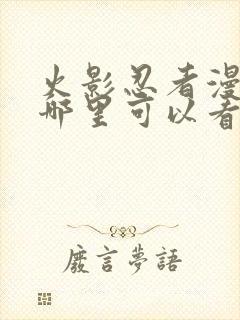 火影忍者漫
哪里可以看
廢言夢語